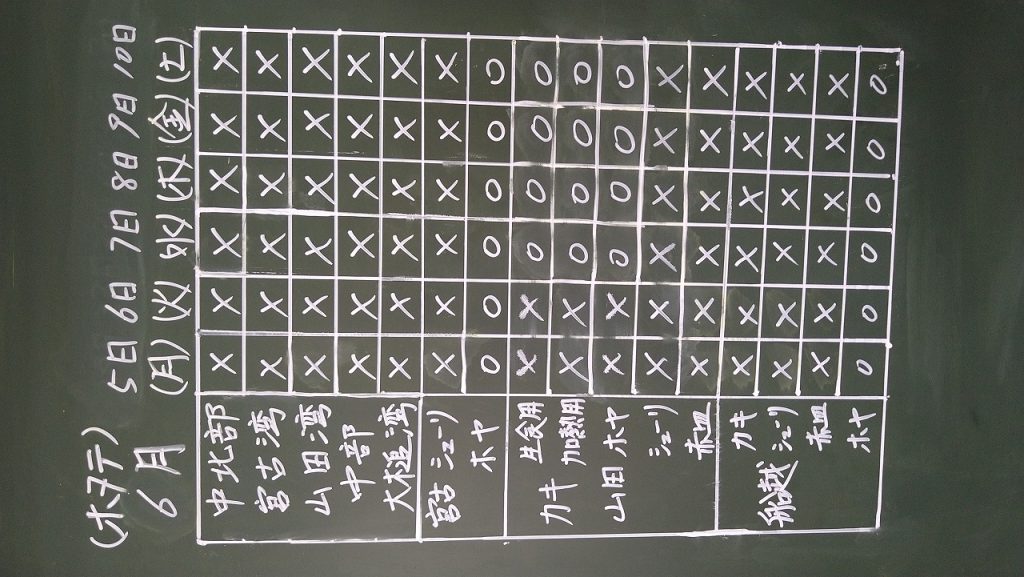 (ホタテ)
6月 5日 6日 7日 8日 9日 10日
(月) (火) 水 (木) (金) (土)
中北部 × × × × × ×
宮古湾 × × × × × ×
山田湾 × × × × × ×
中部 × × × × × ×
大槌湾 × × × × × ×
宮古 シューリ × × × × × ×
ホヤ ○ ○ ○ ○ ○ ○
カキ 生食用 × × ○ ○ ○ ○
加熱用 × × ○ ○ ○ ○
山田 ホヤ × × ○ ○ ○ ○
シューリ × × × × × ×
赤皿 × × × × × ×
カキ × × × × × ×
船越 シューリ × × × × × ×
赤皿 × × × × × ×
ホヤ ○ ○ ○ ○ ○ ○